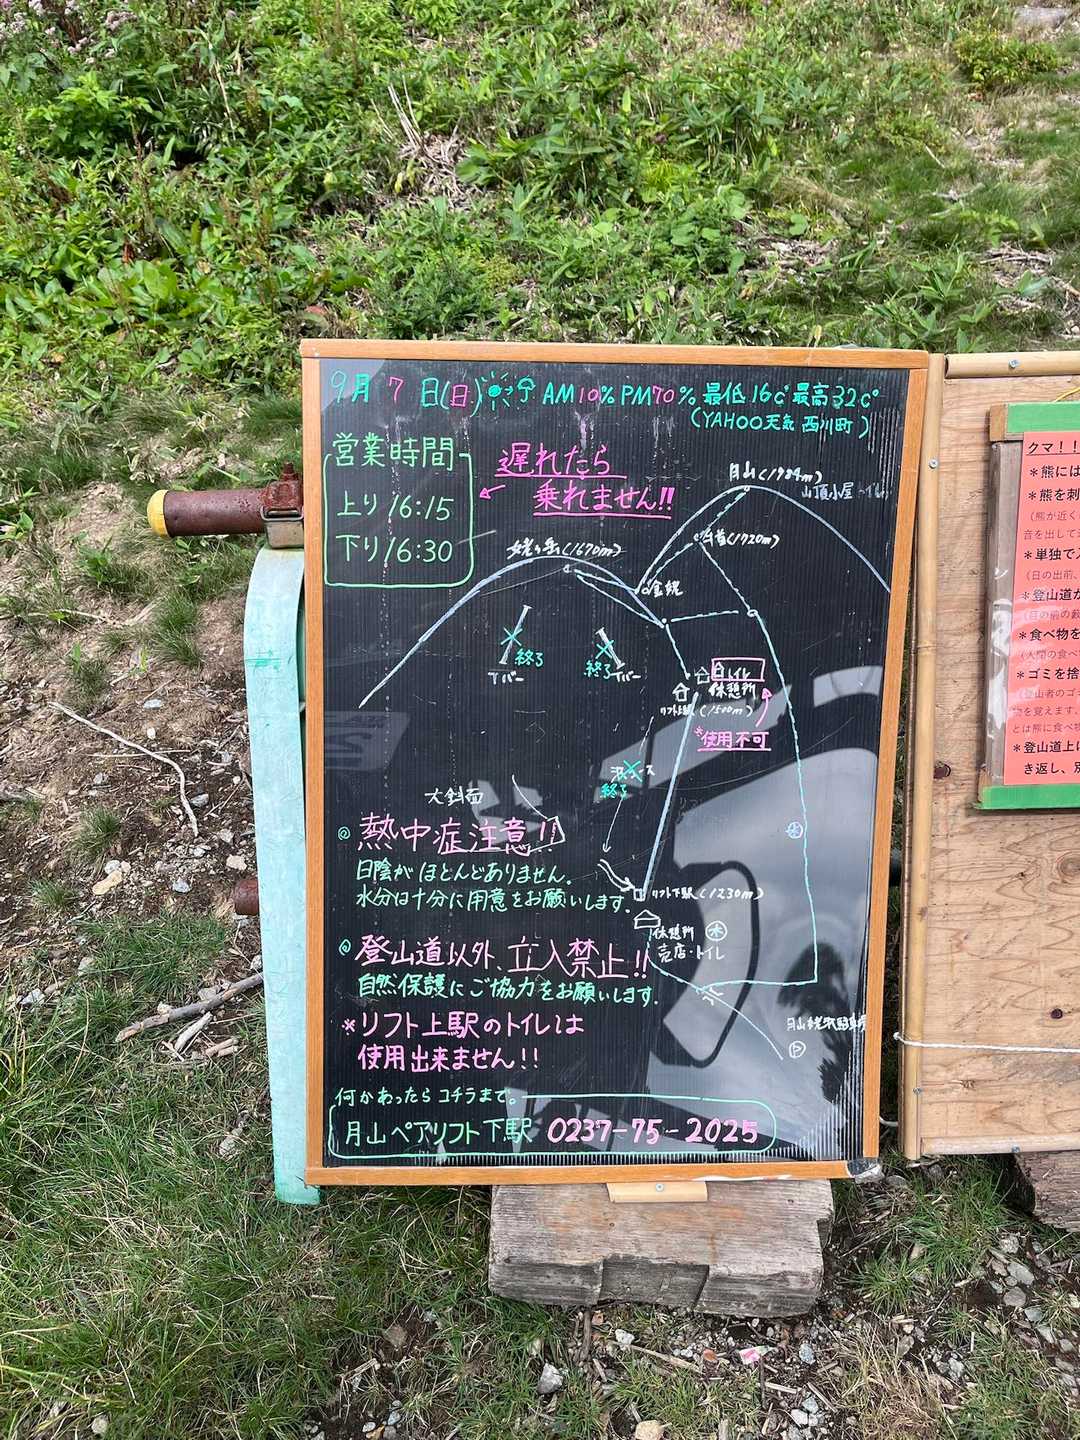 9月 7 日(日) AM10% PM70% 最低16℃ 最高32℃
(YAHOO天気 西川町)
営業時間
上り 16:15
下り 16:30
遅れたら
乗れません!!
月山(1984m)
山頂小屋・トイレ
牛首(1720m)
姥ヶ岳(1670m)
金姥
終了
Tバー
終了
Tバー
トイレ
休憩所
リフト上駅(1500m)
*使用不可
沢コース
終了
大斜面
◎ 熱中症注意!!
日陰がほとんどありません。
水分は十分に用意をお願いします。
リフト下駅(1230m)
水
休憩所 水
売店・トイレ
◎ 登山道以外、立入禁止!!
自然保護にご協力をお願いします。
※リフト上駅のトイレは
使用出来ません!!
P
何かあったらコチラまで。
月山ペアリフト下駅 0237-75-2025
クマ!!
*熊には
*熊を刺
(熊が近く
音を出して
*単独で
(日の出前、
*登山道か
(目の前の藪
*食べ物を
(人間の食べ
*ゴミを捨
(登山者のゴ
物を覚えます。
とは熊に食べ物
*登山道上に
き返し、別